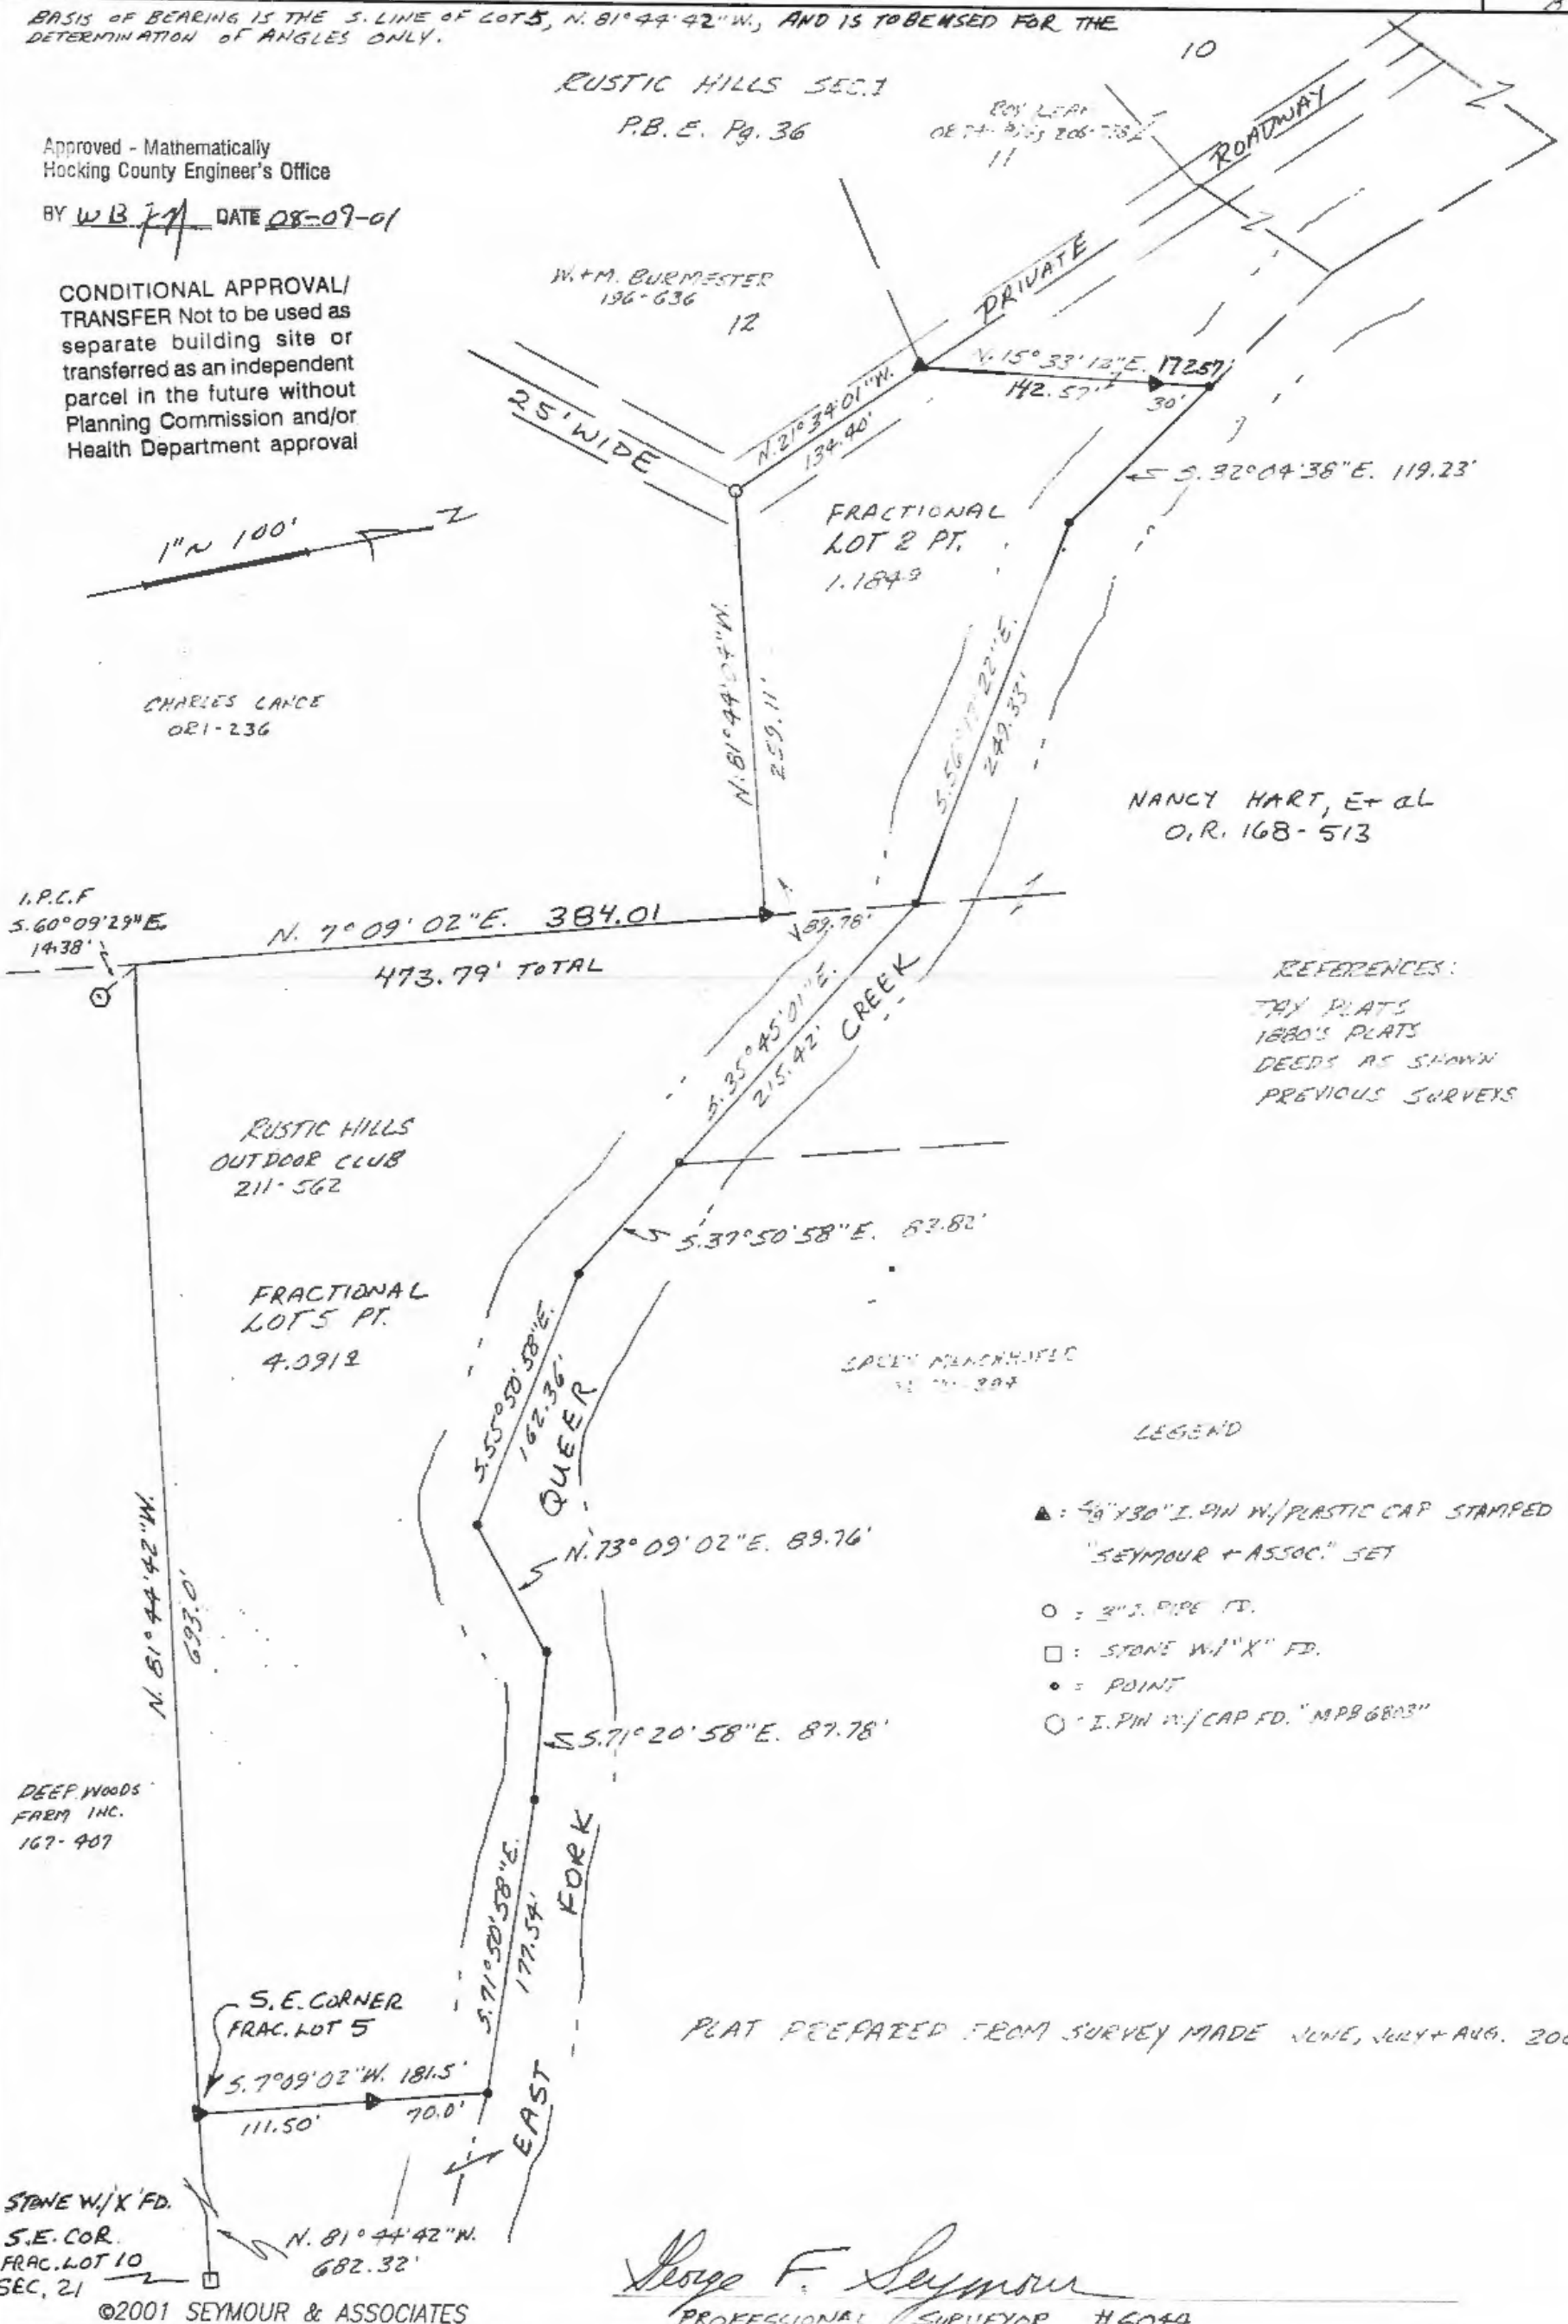 BASIS OF BEARING IS THE S. LINE OF LOT 5, N. 81°44'42"W., AND IS TO BE USED FOR THE
DETERMINATION OF ANGLES ONLY.
10
RUSTIC HILLS SEC. 1
P.B. E. Pg. 36
11
Approved - Mathematically
Hocking County Engineer's Office
BY WB DATE 08-09-01
CONDITIONAL APPROVAL/
TRANSFER Not to be used as
separate building site or
transferred as an independent
parcel in the future without
Planning Commission and/or
Health Department approval
W. + M. BURMESTER
196-636
12
PRIVATE ROADWAY
25' WIDE
N. 21°34'01"W.
134.40'
N. 15°33'13"E. 172.57'
142.57'
30'
S. 32°04'38"E. 119.23'
1"~ 100'
FRACTIONAL
LOT 2 PT.
1.1849
CHARLES LANCE
OR1-236
N. 81°44'07"W.
259.11'
S. 56° 22"E.
249.33'
NANCY HART, Et aL
O.R. 168-513
I.P.C.F
S. 60°09'29"E.
14.38'
N. 7°09'02"E. 384.01
89.78'
473.79' TOTAL
S. 35°45'01"E.
215.42'
CREEK
REFERENCES:
TAX PLATS
1880'S PLATS
DEEDS AS SHOWN
PREVIOUS SURVEYS
RUSTIC HILLS
OUTDOOR CLUB
211-562
S. 37°50'58"E. 83.82'
FRACTIONAL
LOT 5 PT.
4.0912
S. 55°50'58"E.
162.36'
QUEER
LEGEND
▲ : 5/8"X30" I. PIN W/PLASTIC CAP STAMPED
"SEYMOUR + ASSOC." SET
○ : 3" I. PIPE FD.
□ : STONE W/"X" FD.
• : POINT
I. PIN W/CAP FD. "MPB 6803"
N. 73°09'02"E. 89.76'
N. 81°44'42"W.
693.0'
S. 71°20'58"E. 87.78'
DEEP WOODS
FARM INC.
167-407
S. 71°50'58"E.
177.54'
FORK
S.E. CORNER
FRAC. LOT 5
PLAT PREPARED FROM SURVEY MADE JUNE, JULY + AUG.
S. 7°09'02"W. 181.5'
111.50'
70.0'
EAST
STONE W/'X' FD.
S.E. COR.
FRAC. LOT 10
SEC. 21
N. 81°44'42"W.
682.32'
©2001 SEYMOUR & ASSOCIATES
George F. Seymour
PROFESSIONAL SURVEYOR #6044